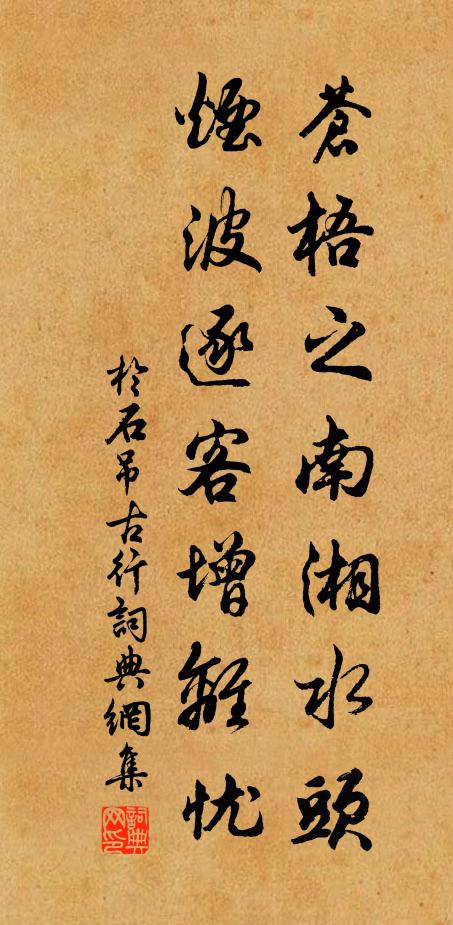 蒼梧之南湘水頭
煙波逐客增離忧
於石吊古行詞典網集
詞典网印